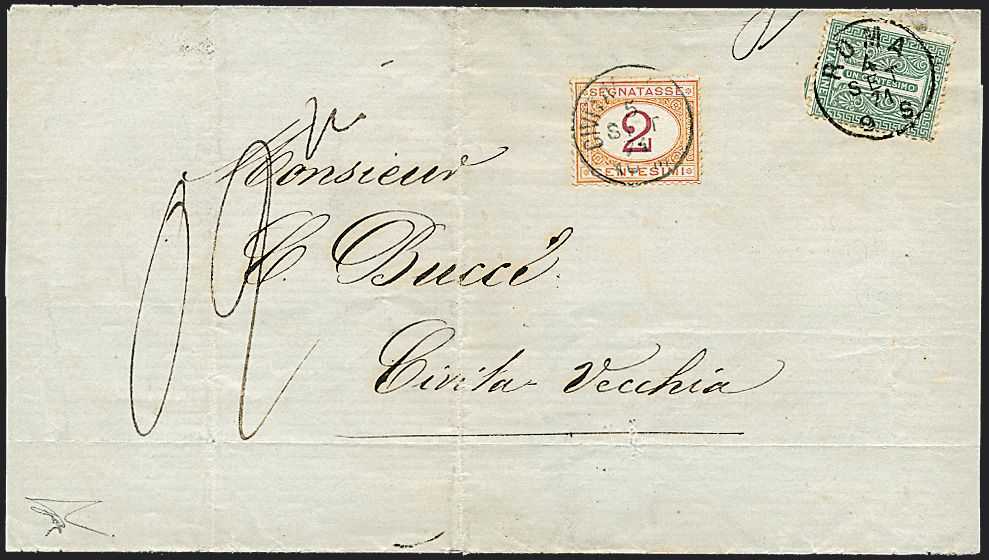 ROMA
UN CENTESIMO
SEGNATASSE
5
2
CENTESIMI
Monsieur
C. Bucci
Civita-Vecchia